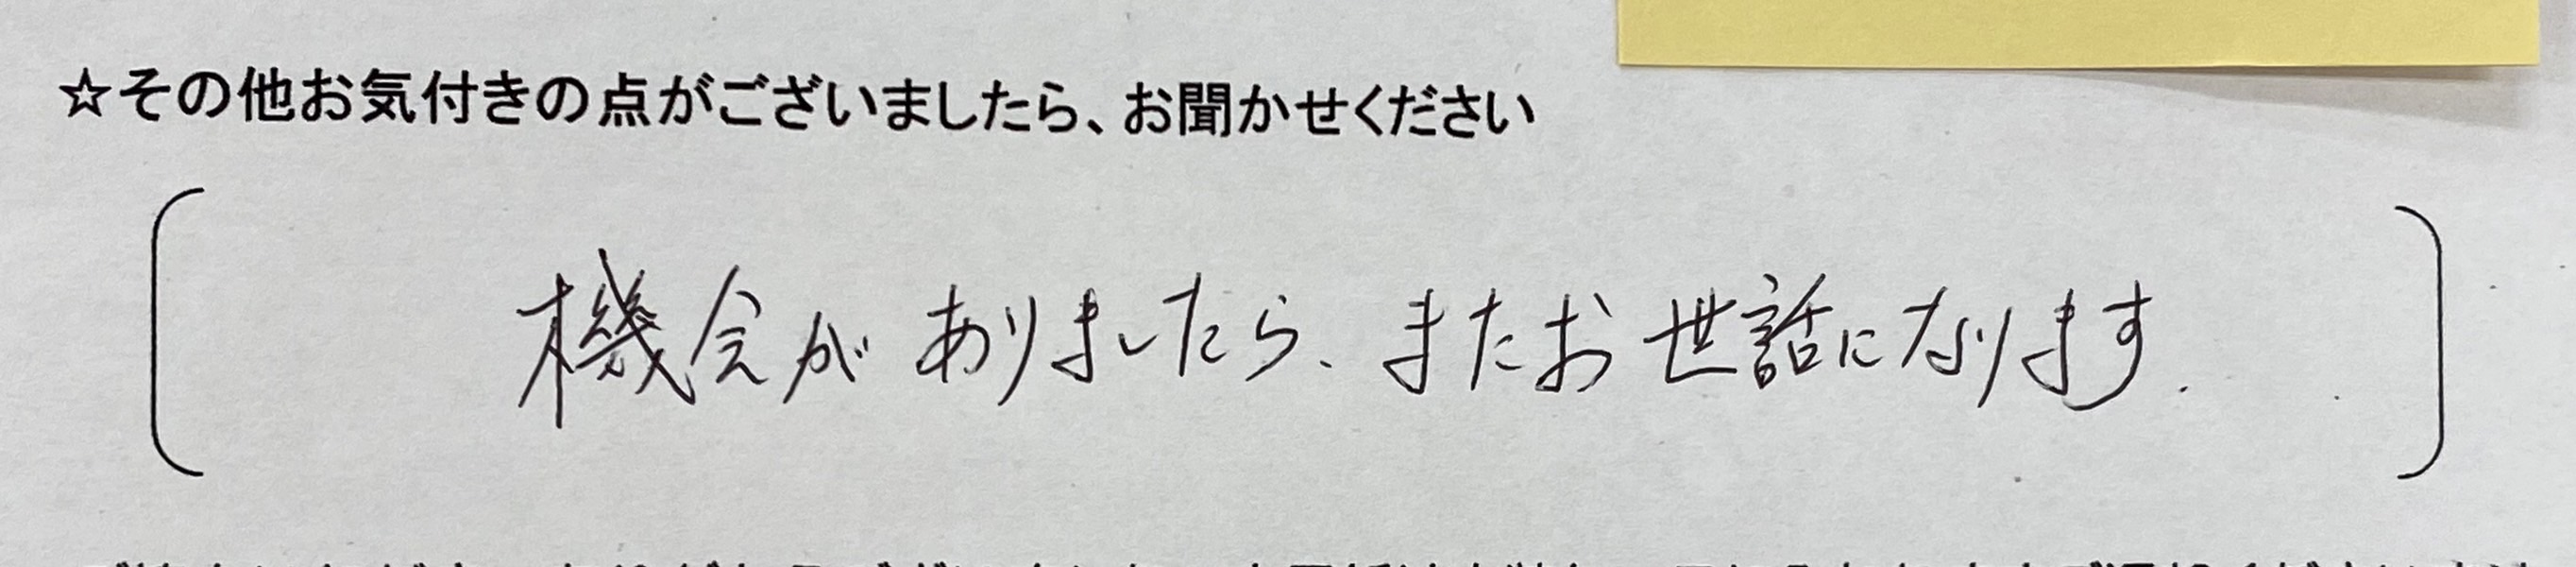 ☆その他お気付きの点がございましたら、お聞かせください
機会がありましたら、またお世話になります.